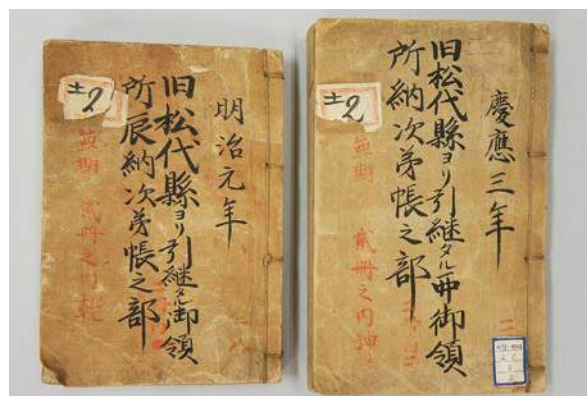 慶應三年
旧松代縣ヨリ引継タル御領
所納次第帳之部
土2
無期 貮冊之内坤
明治元年
旧松代縣ヨリ引継タル御領
所辰納次第帳之部
土2
無期 貮冊之内乾